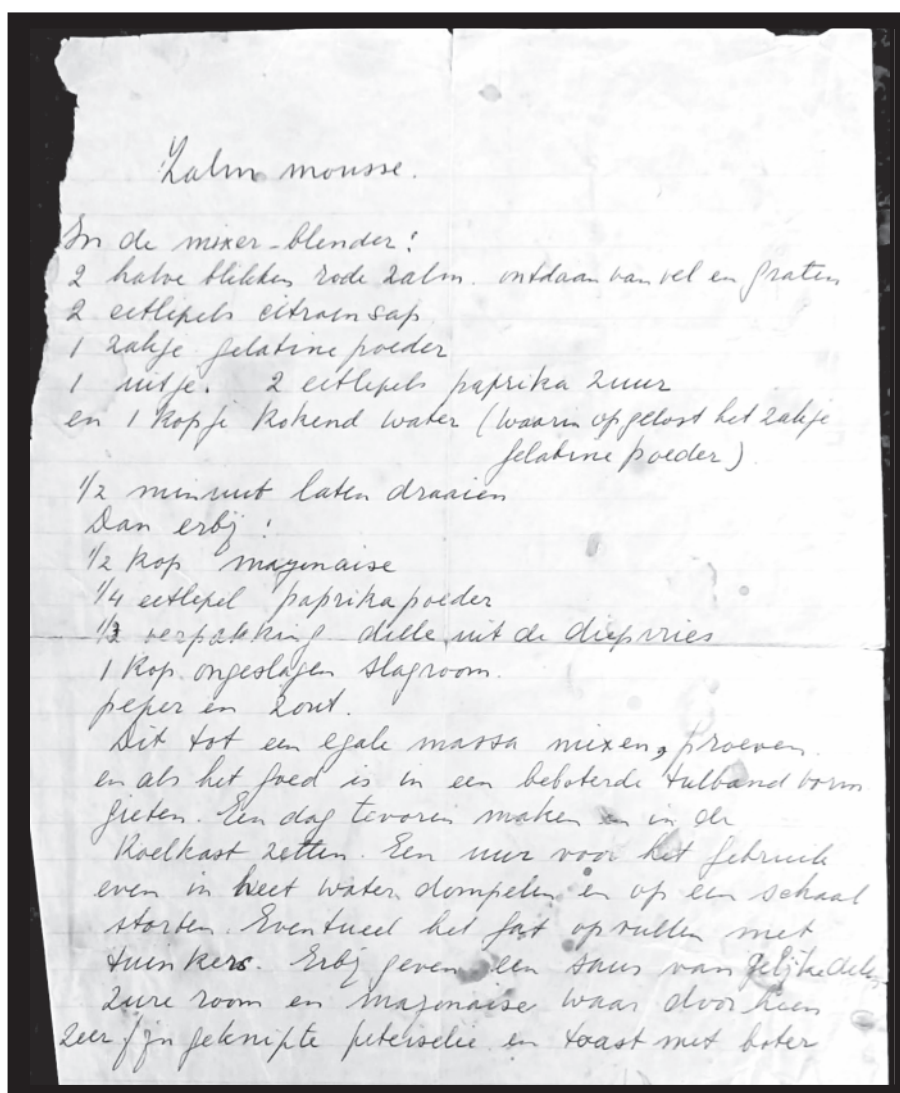 Zalm mousse.
In de mixer-blender:
2 halve blikken rode zalm. ontdaan van vel en graten
2 eetlepels citroensap
1 zakje gelatine poeder
1 uitje. 2 eetlepels paprika zuur
en 1 kopje kokend water (waarin opgelost het zakje
gelatine poeder)
1/2 minuut laten draaien
Dan erbij:
1/2 kop mayonaise
1/4 eetlepel paprikapoeder
1/3 verpakking dille uit de diepvries
1 kop ongeslagen slagroom.
peper en zout.
Dit tot een egale massa mixen, proeven
en als het goed is in een beboterde tulband vorm
gieten. Een dag tevoren maken en in de
koelkast zetten. Een uur voor het gebruik
even in heet water dompelen en op een schaal
storten. Eventueel het gat opvullen met
tuinkers. Erbij geven een saus van gelijke delen
zure room en mayonaise waar door heen
zeer fijn geknipte peterselie en toast met boter